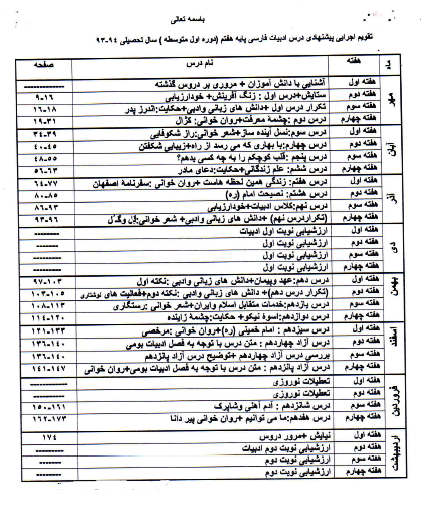 باسمه تعالی
تقویم اجرایی پیشنهادی درس ادبیات فارسی پایه هفتم (دوره اول متوسطه) سال تحصیلی ۹۴-۹۳
ماه هفته نام درس صفحه
مهر هفته اول آشنایی با دانش آموزان + مروری بر دروس گذشته ------------
هفته دوم ستایش+درس اول : زنگ آفرینش+ خودارزیابی ۱۶-۹
هفته سوم تکرار درس اول +دانش های زبانی وادبی+حکایت:اندرز پدر ۱۸-۱۶
هفته چهارم درس دوم :چشمه معرفت+روان خوانی: کژال ۳۱-۱۹
آبان هفته اول درس سوم:نسل آینده ساز+شعر خوانی:راز شکوفایی ۳۹-۳۴
هفته دوم درس چهارم:با بهاری که می رسد از راه+زیبایی شکفتن ۴۵-۴۰
هفته سوم درس پنجم :قلب کوچکم را به چه کسی بدهم؟ ۵۵-۴۸
هفته چهارم درس ششم: علم زندگانی+حکایت:دعای مادر ۶۳-۵۶
آذر هفته اول درس هفتم: زندگی همین لحظه هاست + روان خوانی :سفرنامه اصفهان ۷۷-۶۴
هفته دوم درس هشتم: نصیحت امام (ره) ۸۵-۸۰
هفته سوم درس نهم:کلاس ادبیات+خودارزیابی ۹۳-۸۶
هفته چهارم (تکراردرس نهم) +دانش های زبانی وادبی+ شعر خوانی:گل وگل ۹۶-۹۳
دی هفته اول ارزشیابی نوبت اول ادبیات ---------
هفته دوم ارزشیابی نوبت اول --------
هفته سوم ارزشیابی نوبت اول --------
هفته چهارم ارزشیابی نوبت اول --------
بهمن هفته اول درس دهم:عهد وپیمان+دانش های زبانی وادبی :نکته اول ۱۰۳-۹۷
هفته دوم (تکرار درس دهم)+ دانش های زبانی وادبی :نکته دوم+فعالیت های نوشتاری ۱۰۵-۱۰۳
هفته سوم درس یازدهم:خدمات متقابل اسلام وایران+شعر خوانی :رستگاری ۱۱۳-۱۰۸
هفته چهارم درس دوازدهم:اسوه نیکو+ حکایت:چشمهٔ زاینده ۱۲۰-۱۱۴
اسفند هفته اول درس سیزدهم : امام خمینی (ره)+روان خوانی :مرخصی ۱۳۳-۱۲۱
هفته دوم درس آزاد چهاردهم : متن درس با توجه به فصل ادبیات بومی ۱۴۰-۱۳۶
هفته سوم بررسی درس آزاد چهاردهم +توضیح درس آزاد پانزدهم
هفته چهارم درس آزاد پانزدهم : متن درس با توجه به فصل ادبیات بومی+روان خوانی ۱۴۷-۱۴۱
فروردین هفته اول تعطیلات نوروزی ----------
هفته دوم تعطیلات نوروزی --------
هفته سوم درس شانزدهم : آدم آهنی وشاپرک ۱۶۱-۱۵۰
هفته چهارم درس هفدهم:ما می توانیم +روان خوانی پیر دانا ۱۷۳-۱۶۲
اردیبهشت هفته اول نیایش +مرور دروس ۱۷۴
هفته دوم ارزشیابی نوبت دوم ادبیات ---------
هفته سوم ارزشیابی نوبت دوم --------
هفته چهارم ارزشیابی نوبت دوم --------